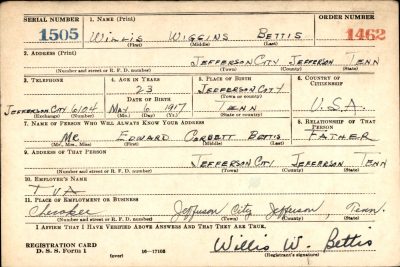 SERIAL NUMBER 1. NAME (Print) ORDER NUMBER
1505 WILLIS WIGGINS BETTIS 1462
(First) (Middle) (Last)
2. ADDRESS (Print)
JEFFERSON CITY JEFFERSON TENN
(Number and street or R. F. D. number) (Town) (County) (State)
3. TELEPHONE 4. AGE IN YEARS 5. PLACE OF BIRTH 6. COUNTRY OF CITIZENSHIP
23 JEFFERSON CITY
DATE OF BIRTH (Town or county)
JEFFERSON CITY 6104 MAY 6 1917 TENN U.S.A.
(Exchange) (Number) (Mo.) (Day) (Yr.) (State or country)
7. NAME OF PERSON WHO WILL ALWAYS KNOW YOUR ADDRESS 8. RELATIONSHIP OF THAT PERSON
MR. EDWARD CORBETT BETTIS FATHER
(Mr., Mrs., Miss) (First) (Middle) (Last)
9. ADDRESS OF THAT PERSON
JEFFERSON CITY JEFFERSON TENN
(Number and street or R. F. D. number) (Town) (County) (State)
10. EMPLOYER'S NAME
TVA
11. PLACE OF EMPLOYMENT OR BUSINESS
Cherokee Jefferson City Jefferson, Tenn.
(Number and street or R. F. D. number) (Town) (County) (State)
I AFFIRM THAT I HAVE VERIFIED ABOVE ANSWERS AND THAT THEY ARE TRUE.
REGISTRATION CARD
D. S. S. Form 1 (over) 16—17105 Willis W. Bettis
(Registrant's signature)